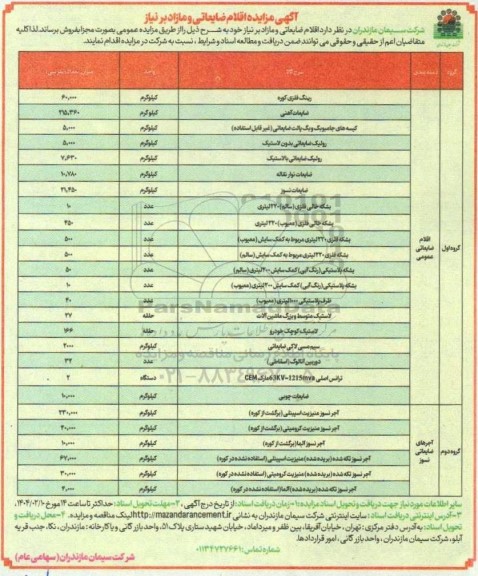 آگهی مزایده اقلام ضایعاتی و مازاد بر نیاز
شرکت سیمان مازندران در نظر دارد اقلام ضایعاتی و مازاد بر نیاز خود به شرح ذیل را از طریق مزایده عمومی بصورت مجزا بفروش برساند. لذا کلیه
متقاضیان اعم از حقیقی و حقوقی می توانند ضمن دریافت و مطالعه اسناد و شرایط، نسبت به شرکت در مزایده اقدام نمایند.
گروه شرح کالا واحد
رینگ فلزی کوره کیلوگرم ۶۰,۰۰۰
ضایعات آهنی کیلوگرم ۲۱۵,۳۶۰
کیسه های جامبوبگ و بگ پالت ضایعاتی (غیر قابل استفاده) کیلوگرم ۵,۰۰۰
رولیک ضایعاتی بدون لاستیک کیلوگرم ۵,۰۰۰
رولیک ضایعاتی با لاستیک کیلوگرم ۷,۶۳۰
ضایعات نوار نقاله کیلوگرم ۱۰,۷۸۰
ضایعات نسوز کیلوگرم ۲۱,۴۵۰
بشکه خالی فلزی (سالم) ۲۲۰ لیتری عدد ۱۰
بشکه خالی فلزی (معیوب) ۲۲۰ لیتری عدد ۴۵۰
بشکه فلزی ۲۲۰ لیتری مربوط به کمک سایش (معیوب) عدد ۵۰۰
بشکه فلزی ۲۲۰ لیتری مربوط به کمک سایش (سالم) عدد ۵۰۰
بشکه پلاستیکی (رنگ آبی) کمک سایش ۲۰۰ لیتری (سالم) عدد ۵۰
بشکه پلاستیکی (رنگ آبی) کمک سایش ۲۰۰ لیتری (معیوب) عدد ۱۰
ظرف پلاستیکی ۱۰۰۰ لیتری (معیوب) عدد ۴۰
لاستیک متوسط و بزرگ ماشین آلات حلقه ۲۷
لاستیک کوچک خودرو حلقه ۱۶۶
سیم مسی لاکی ضایعاتی کیلوگرم ۲۰۰۰
دوربین آنالوگ (اسقاطی) عدد ۳۴
ترانس اصلی 63KV-1215mva مارک CEM دستگاه ۲
ضایعات چوبی کیلوگرم ۱۰,۰۰۰
گروه اول
اقلام ضایعاتی عمومی
آجر نسوز منیزیت اسپینلی (برگشت از کوره) کیلوگرم ۲۳۰,۰۰۰
آجر نسوز منیزیت کرومیتی (برگشت از کوره) کیلوگرم ۲۰,۰۰۰
آجر نسوز آلما (برگشت از کوره) کیلوگرم ۱۰,۰۰۰
آجر نسوز تکه شده (بریده شده) منیزیت اسپینلی (استفاده نشده در کوره) کیلوگرم ۶۷,۰۰۰
آجر نسوز تکه شده (بریده شده) منیزیت کرومیتی (استفاده نشده در کوره) کیلوگرم ۳۰,۰۰۰
آجر نسوز تکه شده (بریده شده) آلما (استفاده نشده در کوره) کیلوگرم ۴,۰۰۰
گروه دوم
آجرهای ضایعاتی نسوز
ParsNamadData
پایگاه اطلاع رسانی مناقصه و مزایده
۰۲۱-۸۸۳۴۹۶۷۰
سایر اطلاعات مورد نیاز جهت دریافت و تحویل اسناد مزایده: ۱- زمان دریافت اسناد: از تاریخ درج آگهی، ۲- مهلت تحویل اسناد: حداکثر تا ساعت ۱۴ مورخ ۱۴۰۴/۰۲/۱۰،
۳- آدرس اینترنتی دریافت اسناد: سایت اینترنتی شرکت سیمان مازندران به نشانی http://mazandarancement.ir، لینک مناقصه و مزایده. ۴- محل دریافت و
تحویل اسناد: به آدرس دفتر مرکزی: تهران، خیابان آفریقا، بین ظفر و میرداماد، خیابان شهید ستاری پلاک ۵۱، واحد بازرگانی و یا کارخانه: مازندران، نکا، جنب قریه
آبلو، شرکت سیمان مازندران، واحد بازرگانی، امور قراردادها.
شماره تماس: ۰۱۱۳۴۷۲۷۶۶۱
شرکت سیمان مازندران (سهامی عام)